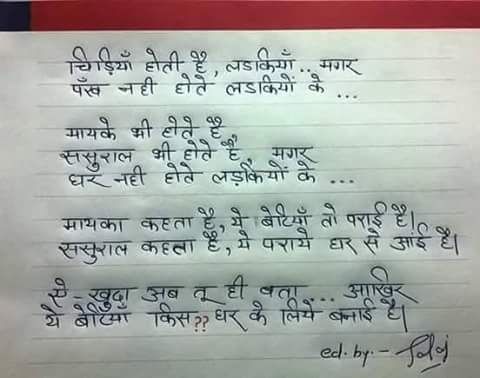 चिड़ियाँ होती है, लडकियाँ.. मगर
पँख नही होते लडकियों के ...
मायके भी होते है,
ससुराल भी होते है, मगर
घर नही होते लड़कियों के ...
मायका कहता है, ये बेटियाँ तो पराई है।
ससुराल कहता है, ये पराये घर से आई है।
ऐ - खुदा अब तू ही बता ... आखिर
ये बेटियाँ किस ?? घर के लिये बनाई है।
ed. by. -